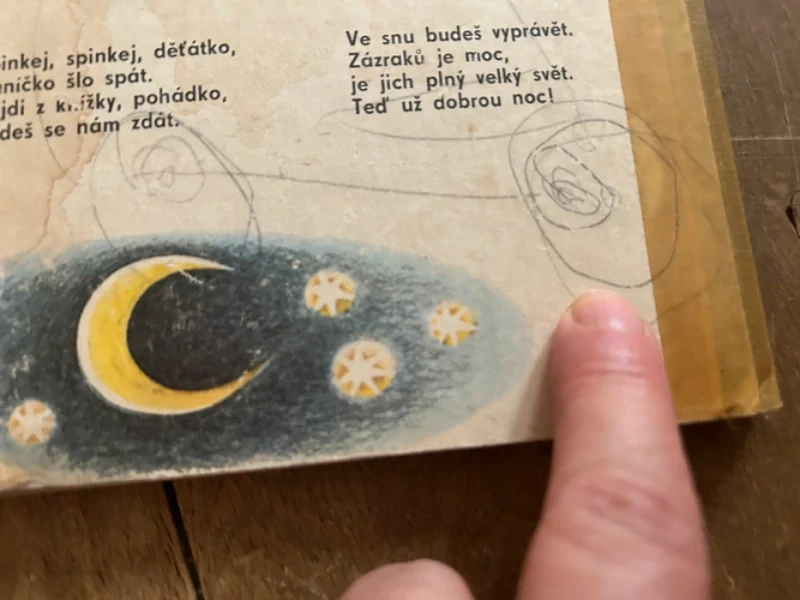 spinkej, děťátko,
šlo spát.
z knížky, pohádko,
se nám zdát.
Ve snu budeš vyprávět.
Zázraků je moc,
je jich plný velký svět.
Teď už dobrou noc!